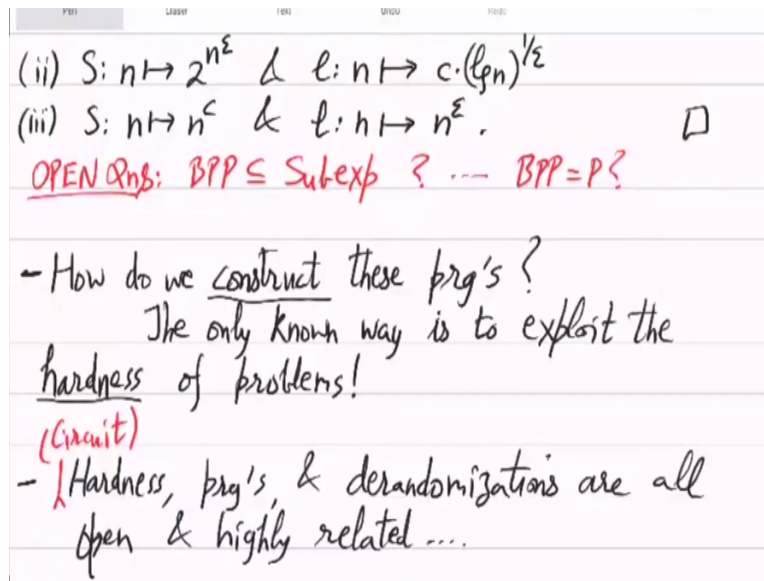 Pen Eraser Text Undo Redo
(ii) S: n ↦ 2^{n^ε} & ℓ: n ↦ c·(lg n)^{1/ε}
(iii) S: n ↦ n^c & ℓ: n ↦ n^ε. □
OPEN Qns: BPP ⊆ Subexp ? .... BPP = P?
- How do we construct these prg's ?
The only known way is to exploit the
hardness of problems!
(Circuit)
- Hardness, prg's, & derandomizations are all
open & highly related ....